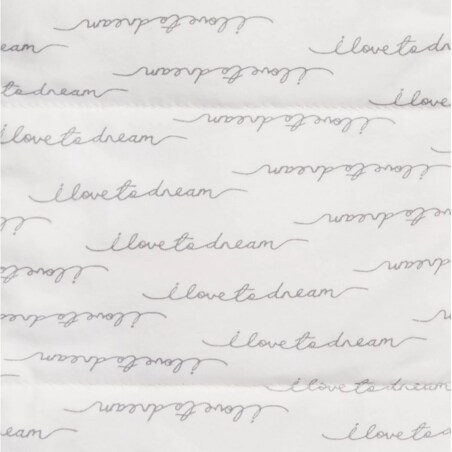 i love to dream
eam
i love to dr
i love to dream
love to dream
i love
i love to dream
i love to dream
i love to dream
i love to dream
ve to dream
i l
i love to dream
i love
dream
i love to dream
i love to dre
i love to dream
i love to dream
i love to dream
i love to dream
eam
i love to dr